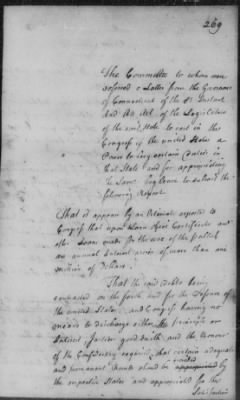 269
The Committee to whom was
referred a Letter from the Governor
of Connecticut of the 1st Instant
And An Act of the Legislature
of the said State to vest in the
Congress of the united States a
Power to levy certain Duties in
that State and for appropriating
the same beg leave to submit the
following Report
That it appears by an Estimate reported to
Congress that upon Loan Office Certificates and
other Loans made for the use of the publick
an annual Interest arises of more than one
million of Dollars.
That the said Debts being
contracted on the faith and for the Defence of
the united States, and Congress having no
means to discharge either the principle or
Interest, Justice good faith and the Honour
of the Confederacy require, that certain adequate
and permanent Funds should be
by
the respective States and appropriated for the